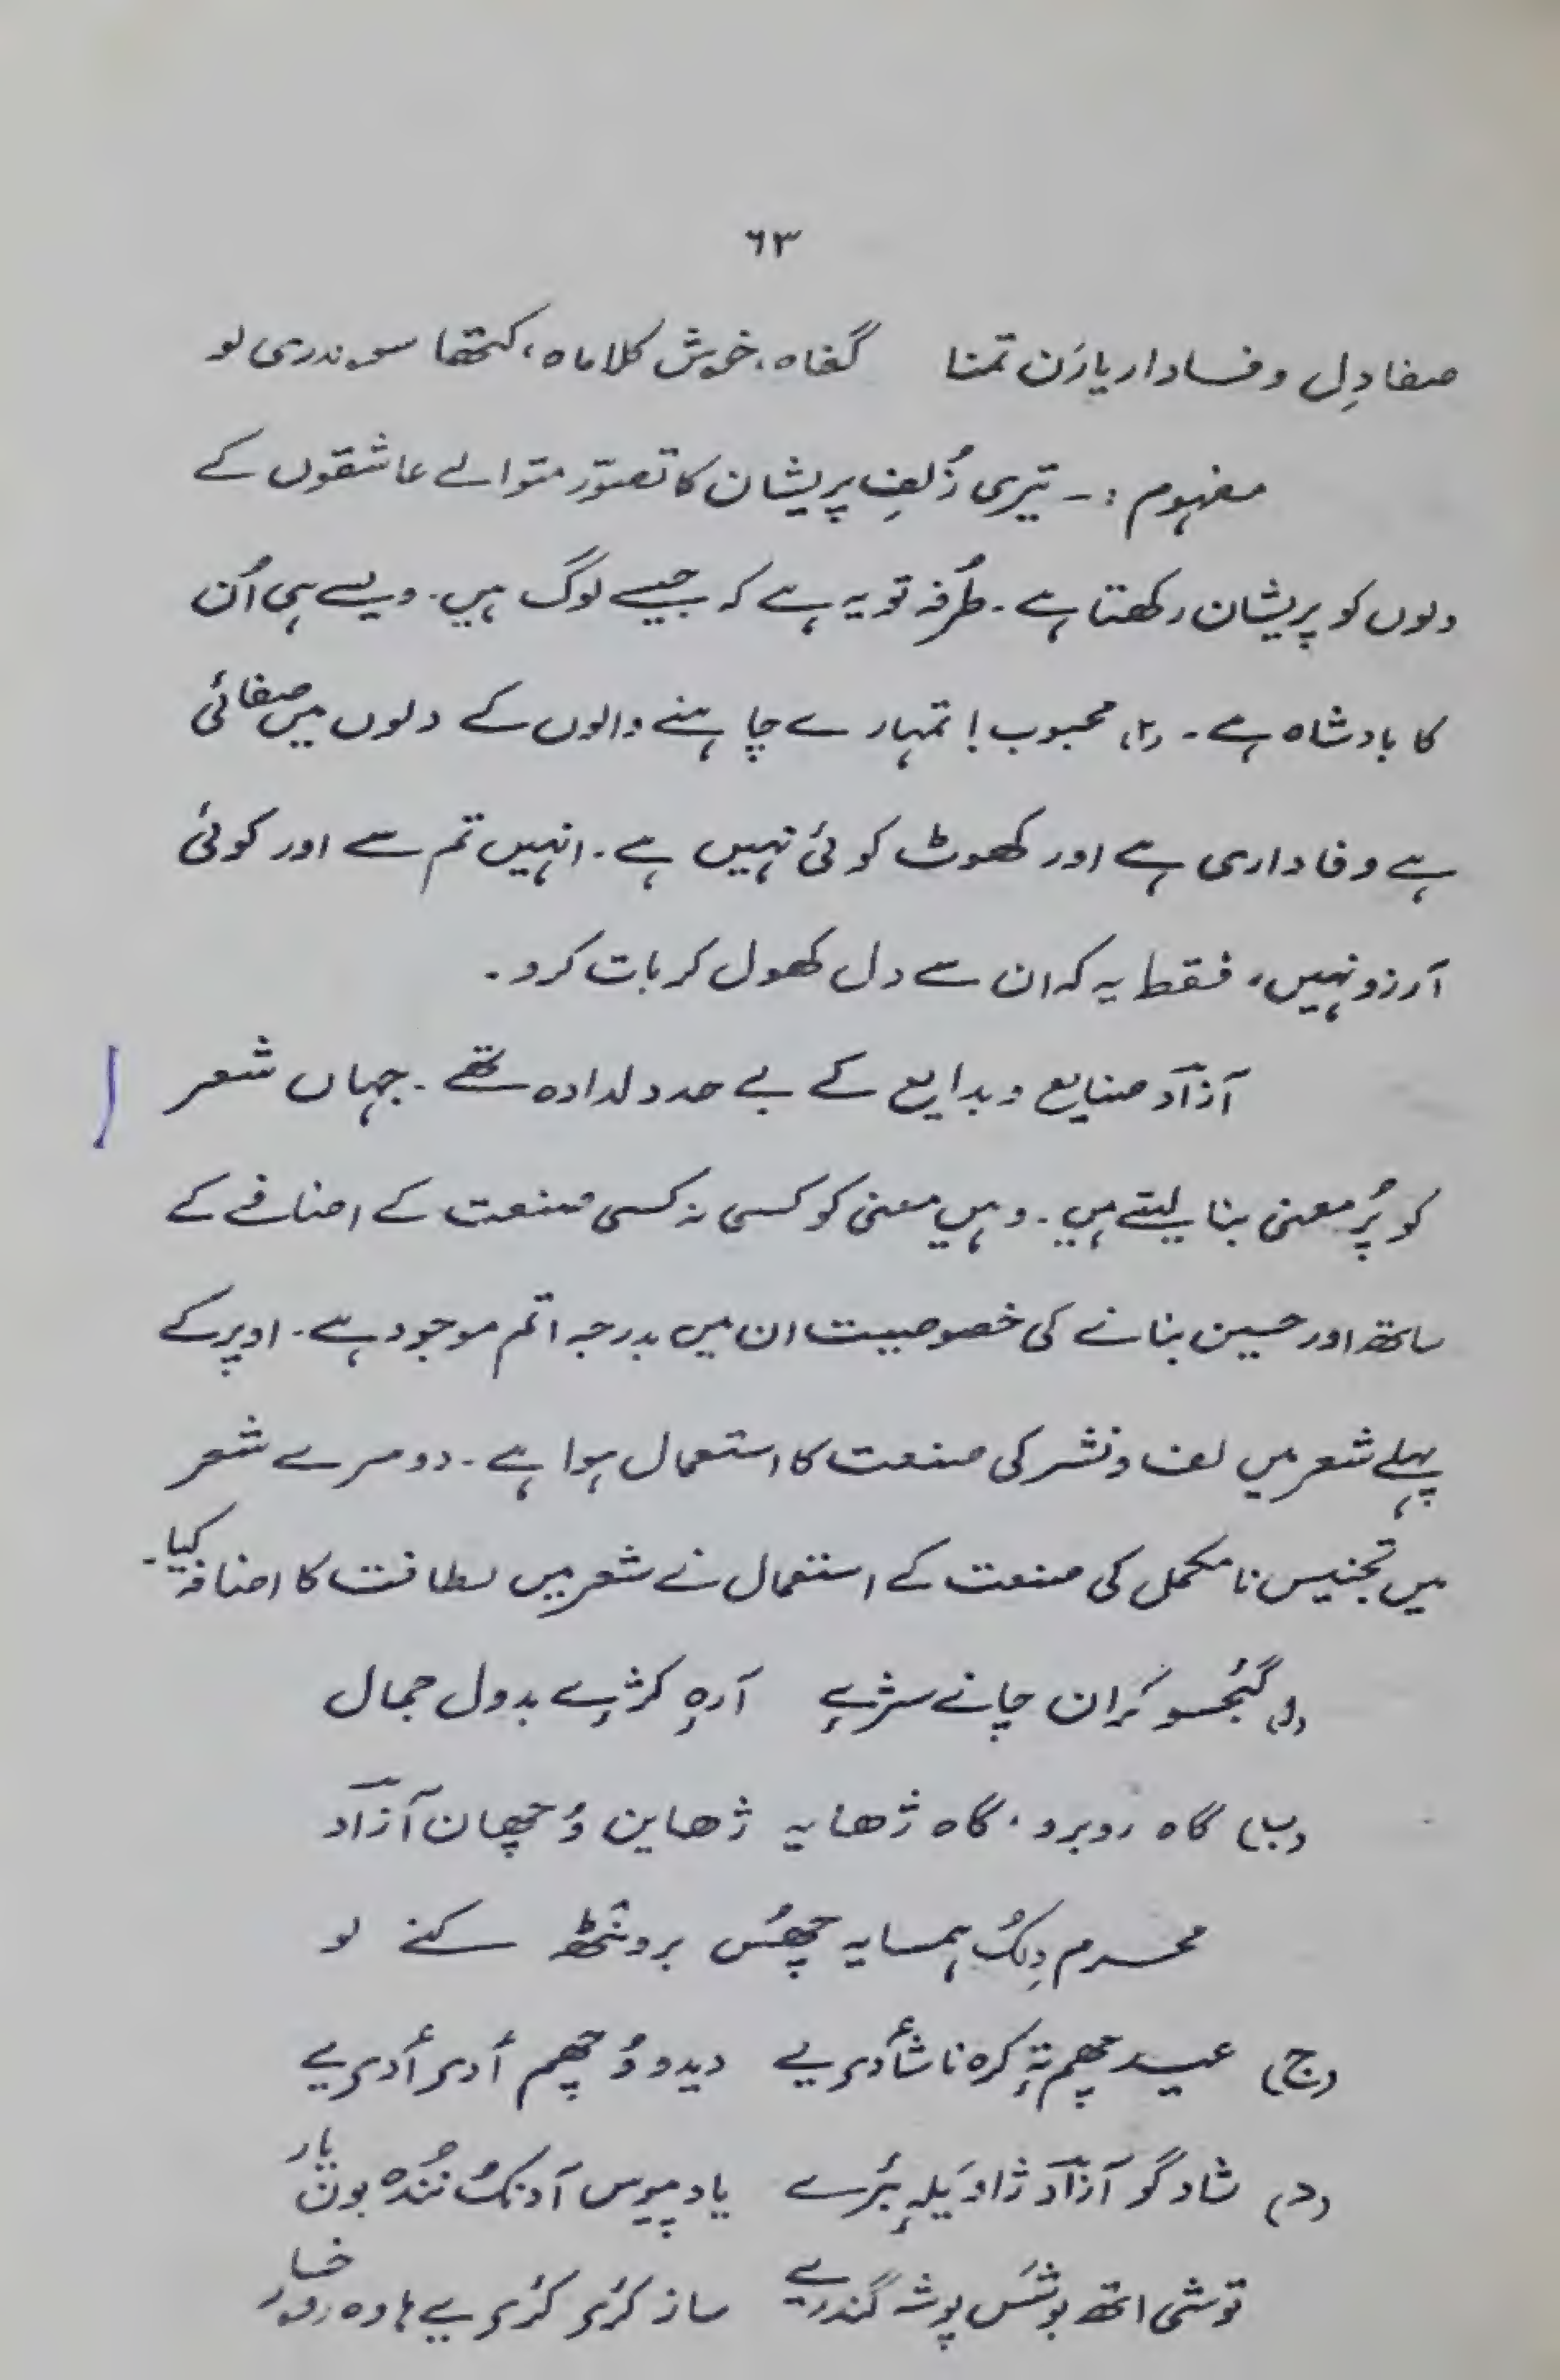 ٦٣
صفا دِل وفادار یارَن تمنا گفاہ، خوش کلاماہ، کتھا سوندری لو
مفہوم :- تیری زُلفِ پریشان کا تصوّر متوالے عاشقوں کے
دلوں کو پریشان رکھتا ہے۔ طُرفہ تو یہ ہے کہ جیسے لوگ ہیں۔ ویسے ہی اُن
کا بادشاہ ہے۔ (۲) محبوب! تمہارے چاہنے والوں کے دلوں میں صفائی
ہے وفاداری ہے اور کھوٹ کوئی نہیں ہے۔ انہیں تم سے اور کوئی
آرزو نہیں، فقط یہ کہ ان سے دل کھول کر بات کرو۔
آزآد صنایع و بدایع کے بے حد دلدادہ تھے۔ جہاں شعر
کو پُر معنی بنا لیتے ہیں۔ وہیں معنی کو کسی نہ کسی صنعت کے اضافے کے
ساتھ اور حسین بنانے کی خصوصیت ان میں بدرجہ اتم موجود ہے۔ اوپر کے
پہلے شعر میں لف و نشر کی صنعت کا استعمال ہوا ہے۔ دوسرے شعر
میں تجنیس نامکمل کی صنعت کے استعمال نے شعر میں لطافت کا اضافہ کیا۔
کران چانے سرٔے آرہِ کرٔے بدول جمال
(ب) گاہ روبرو، گاہ ژھایہ ژھاین وُچھان آزآد
محرم دِلُک ہمسایہ چھُس برونٹھ کنے لو
(ج) عید چھم تہٕ کرہ نا شأدی یے دیدو وُچھم أدی أدی یے
(د) شاد گو آزآد ژاو یاد پیوس بون یار
توشی اتھ پوشہ ساز کرٔی کرٔی یے